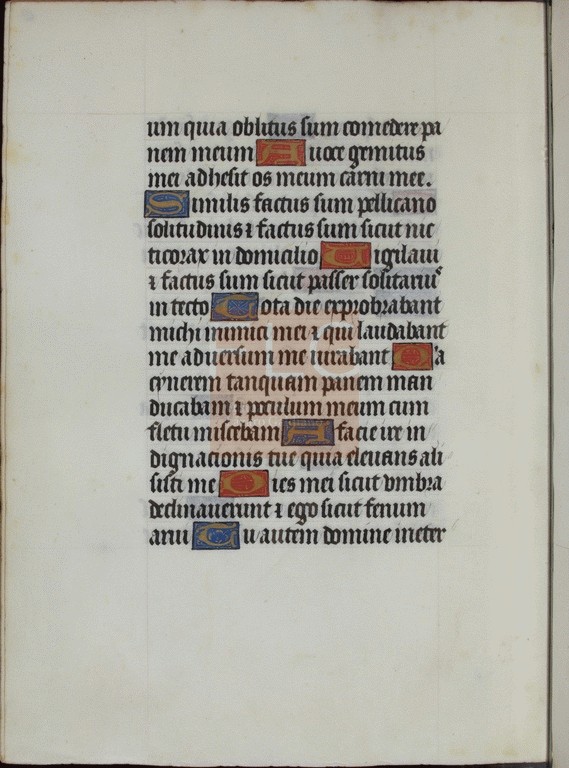 um quia oblitus sum comedere pa
nem meum A uoce gemitus
mei adhesit os meum carni mee.
Similis factus sum pellicano
solitudinis ⁊ factus sum sicut nic
ticorax in domicilio Uigilaui
⁊ factus sum sicut passer solitariꝰ
in tecto Tota die exprobrabant
michi inimici mei ⁊ qui laudabant
me aduersum me iurabant Q'a
cynerem tanquam panem man
ducabam ⁊ poculum meum cum
fletu miscebam A facie ire in
dignacionis tue quia eleuans ali
sisti me Dies mei sicut vmbra
declinauerunt ⁊ ego sicut fenum
arui Tu autem domine ineter